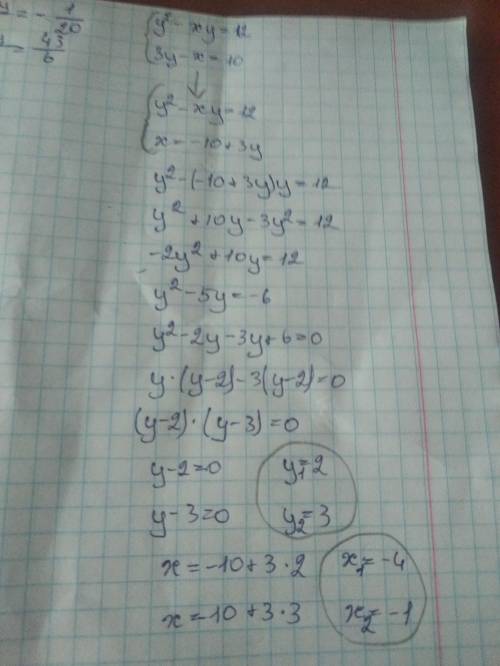 y = - 1/20
y = 43/6
{ y² - xy = 12
3y - x = 10
↓
{ y² - xy = 12
x = -10 + 3y
y² - (-10 + 3y)y = 12
y² + 10y - 3y² = 12
-2y² + 10y = 12
y² - 5y = -6
y² - 2y - 3y + 6 = 0
y · (y-2) - 3(y-2) = 0
(y-2) · (y-3) = 0
y - 2 = 0 y₁ = 2
y - 3 = 0 y₂ = 3
x = -10 + 3 · 2 x₁ = -4
x = -10 + 3 · 3 x₂ = -1